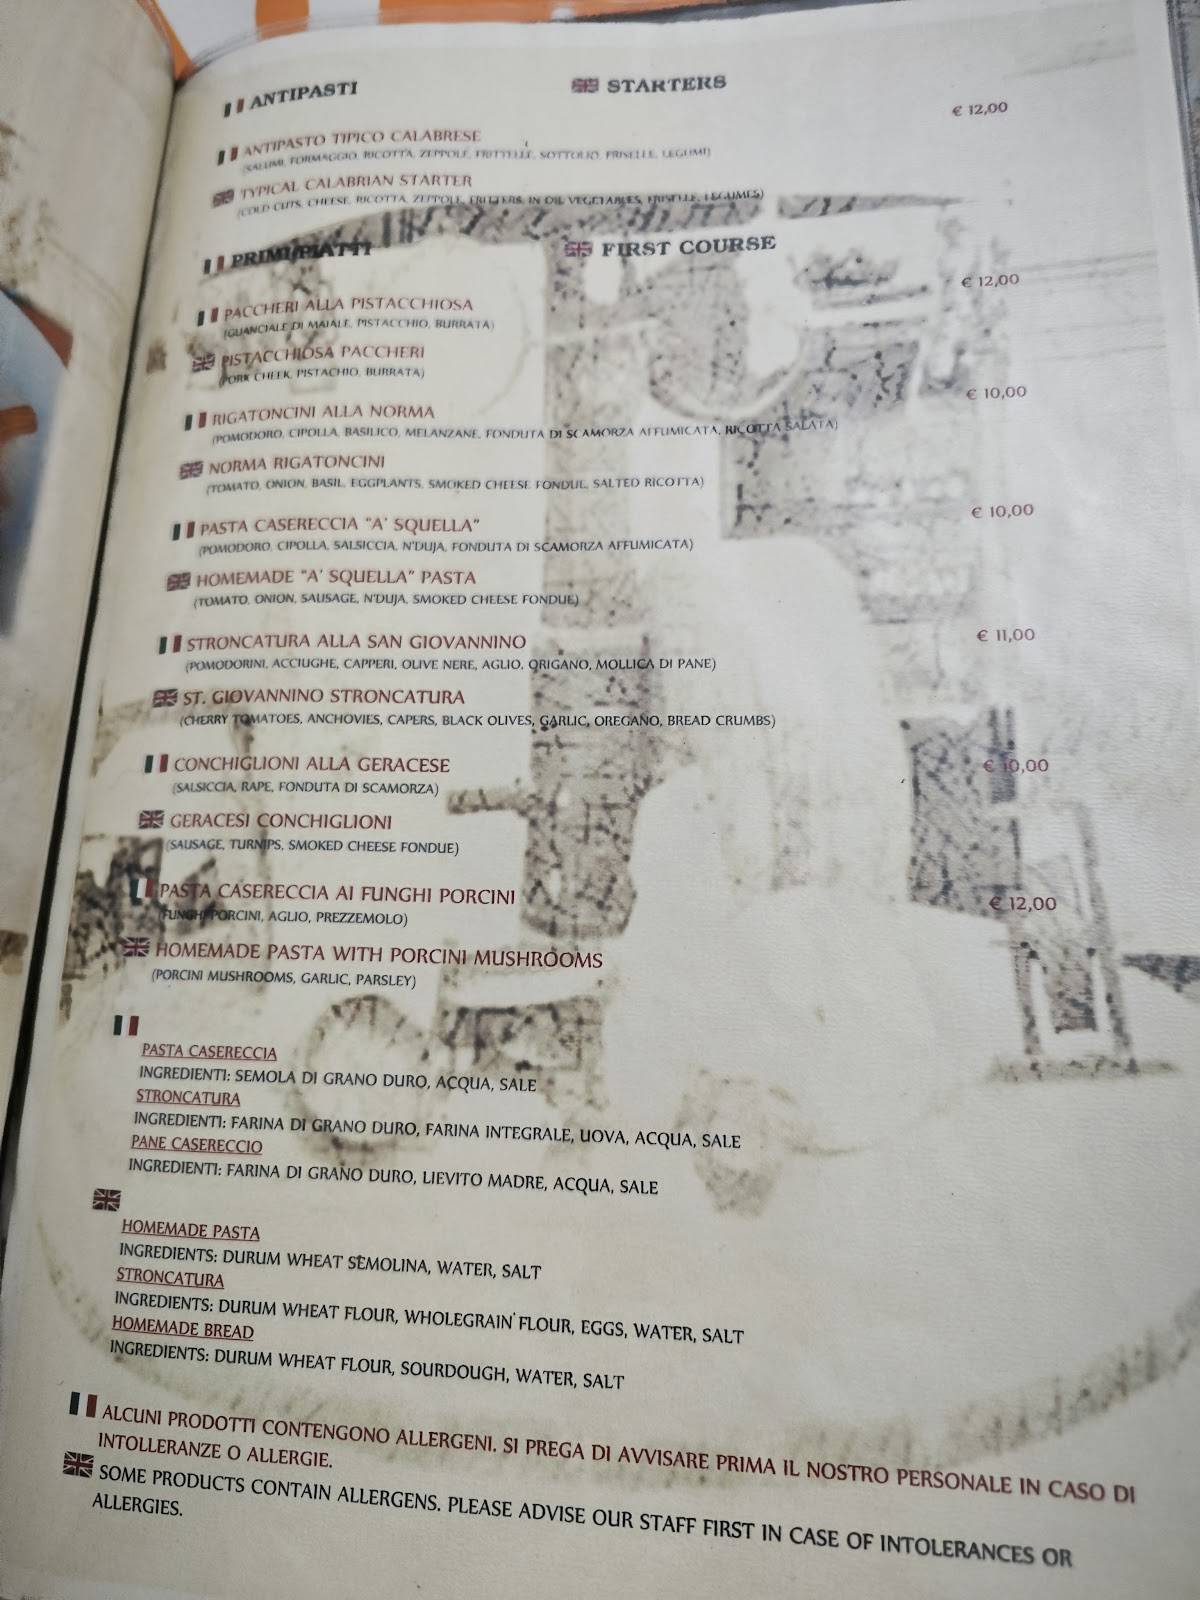 ANTIPASTI STARTERS
€ 12,00
ANTIPASTO TIPICO CALABRESE
(SALUMI, FORMAGGIO, RICOTTA, ZEPPOLE, FRITTELLE, SOTTOLIO, FRISELLE, LEGUMI)
TYPICAL CALABRIAN STARTER
(COLD CUTS, CHEESE, RICOTTA, ZEPPOLE, FRITTERS, IN OIL VEGETABLES, FRISELLE, LEGUMES)
PRIMI PIATTI FIRST COURSE
€ 12,00
PACCHERI ALLA PISTACCHIOSA
(GUANCIALE DI MAIALE, PISTACCHIO, BURRATA)
PISTACCHIOSA PACCHERI
(PORK CHEEK, PISTACHIO, BURRATA)
€ 10,00
RIGATONCINI ALLA NORMA
(POMODORO, CIPOLLA, BASILICO, MELANZANE, FONDUTA DI SCAMORZA AFFUMICATA, RICOTTA SALATA)
NORMA RIGATONCINI
(TOMATO, ONION, BASIL, EGGPLANTS, SMOKED CHEESE FONDUE, SALTED RICOTTA)
€ 10,00
PASTA CASERECCIA "A' SQUELLA"
(POMODORO, CIPOLLA, SALSICCIA, N'DUJA, FONDUTA DI SCAMORZA AFFUMICATA)
HOMEMADE "A' SQUELLA" PASTA
(TOMATO, ONION, SAUSAGE, N'DUJA, SMOKED CHEESE FONDUE)
€ 11,00
STRONCATURA ALLA SAN GIOVANNINO
(POMODORINI, ACCIUGHE, CAPPERI, OLIVE NERE, AGLIO, ORIGANO, MOLLICA DI PANE)
ST. GIOVANNINO STRONCATURA
(CHERRY TOMATOES, ANCHOVIES, CAPERS, BLACK OLIVES, GARLIC, OREGANO, BREAD CRUMBS)
CONCHIGLIONI ALLA GERACESE € 10,00
(SALSICCIA, RAPE, FONDUTA DI SCAMORZA)
GERACESI CONCHIGLIONI
(SAUSAGE, TURNIPS, SMOKED CHEESE FONDUE)
PASTA CASERECCIA AI FUNGHI PORCINI € 12,00
(FUNGHI PORCINI, AGLIO, PREZZEMOLO)
HOMEMADE PASTA WITH PORCINI MUSHROOMS
(PORCINI MUSHROOMS, GARLIC, PARSLEY)
PASTA CASERECCIA
INGREDIENTI: SEMOLA DI GRANO DURO, ACQUA, SALE
STRONCATURA
INGREDIENTI: FARINA DI GRANO DURO, FARINA INTEGRALE, UOVA, ACQUA, SALE
PANE CASERECCIO
INGREDIENTI: FARINA DI GRANO DURO, LIEVITO MADRE, ACQUA, SALE
HOMEMADE PASTA
INGREDIENTS: DURUM WHEAT SEMOLINA, WATER, SALT
STRONCATURA
INGREDIENTS: DURUM WHEAT FLOUR, WHOLEGRAIN FLOUR, EGGS, WATER, SALT
HOMEMADE BREAD
INGREDIENTS: DURUM WHEAT FLOUR, SOURDOUGH, WATER, SALT
ALCUNI PRODOTTI CONTENGONO ALLERGENI. SI PREGA DI AVVISARE PRIMA IL NOSTRO PERSONALE IN CASO DI
INTOLLERANZE O ALLERGIE.
SOME PRODUCTS CONTAIN ALLERGENS. PLEASE ADVISE OUR STAFF FIRST IN CASE OF INTOLERANCES OR
ALLERGIES.